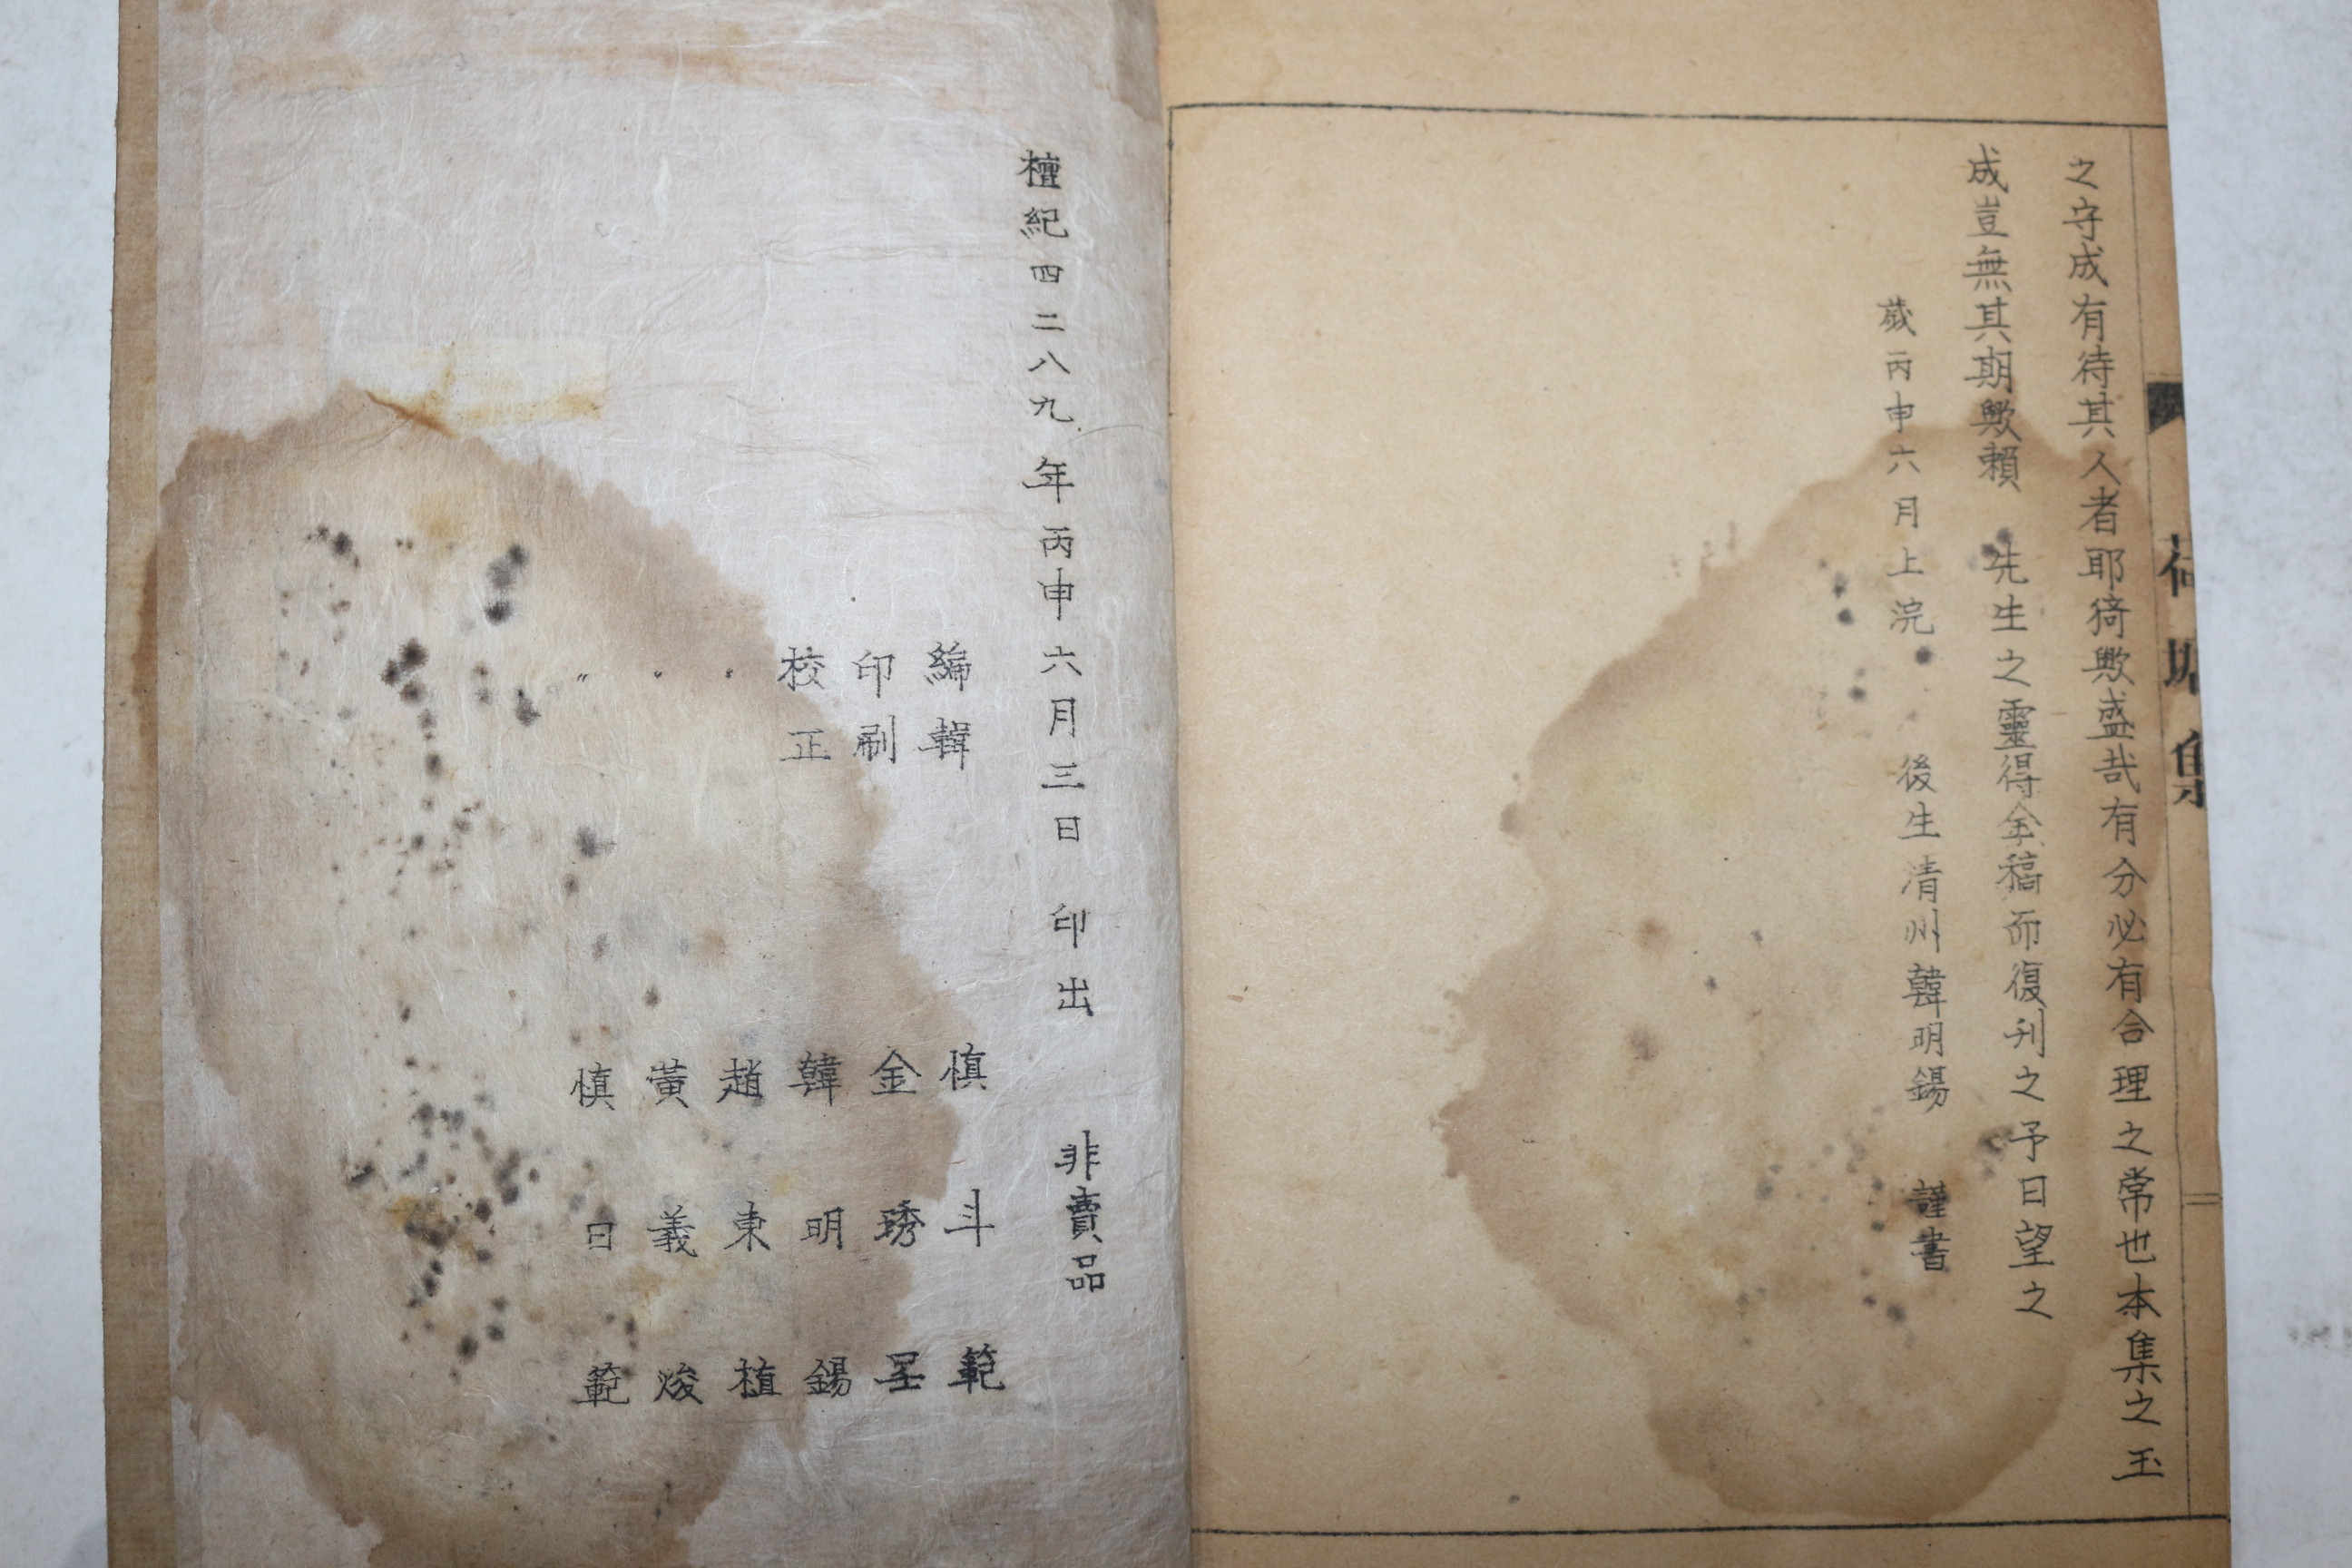 荷塘集
之守成有待其人者耶猗歟盛哉有分必有合理之常也本集之玉
成豈無其期歟賴 先生之靈得全稿而復刊之予日望之
歲丙申六月上浣 後生清州韓明錫 謹書
檀紀四二八九年丙申六月三日 印出 非賣品
編輯 慎斗範
印刷 金琇呈
校正 韓明錫
〃 趙東植
〃 黃義焌
〃 慎日範